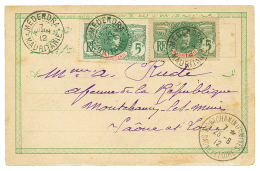 MEDERDRA
MAURITANIE
12
RF 5
RF 5
MEDERDRA
MAURITANIE
Mme A. Rude
Avenue de la République
Montchanin-les-Mines
Saône et Loire
MONTCHANIN-LES-MINES
6
12
SAONE-ET-LOIRE